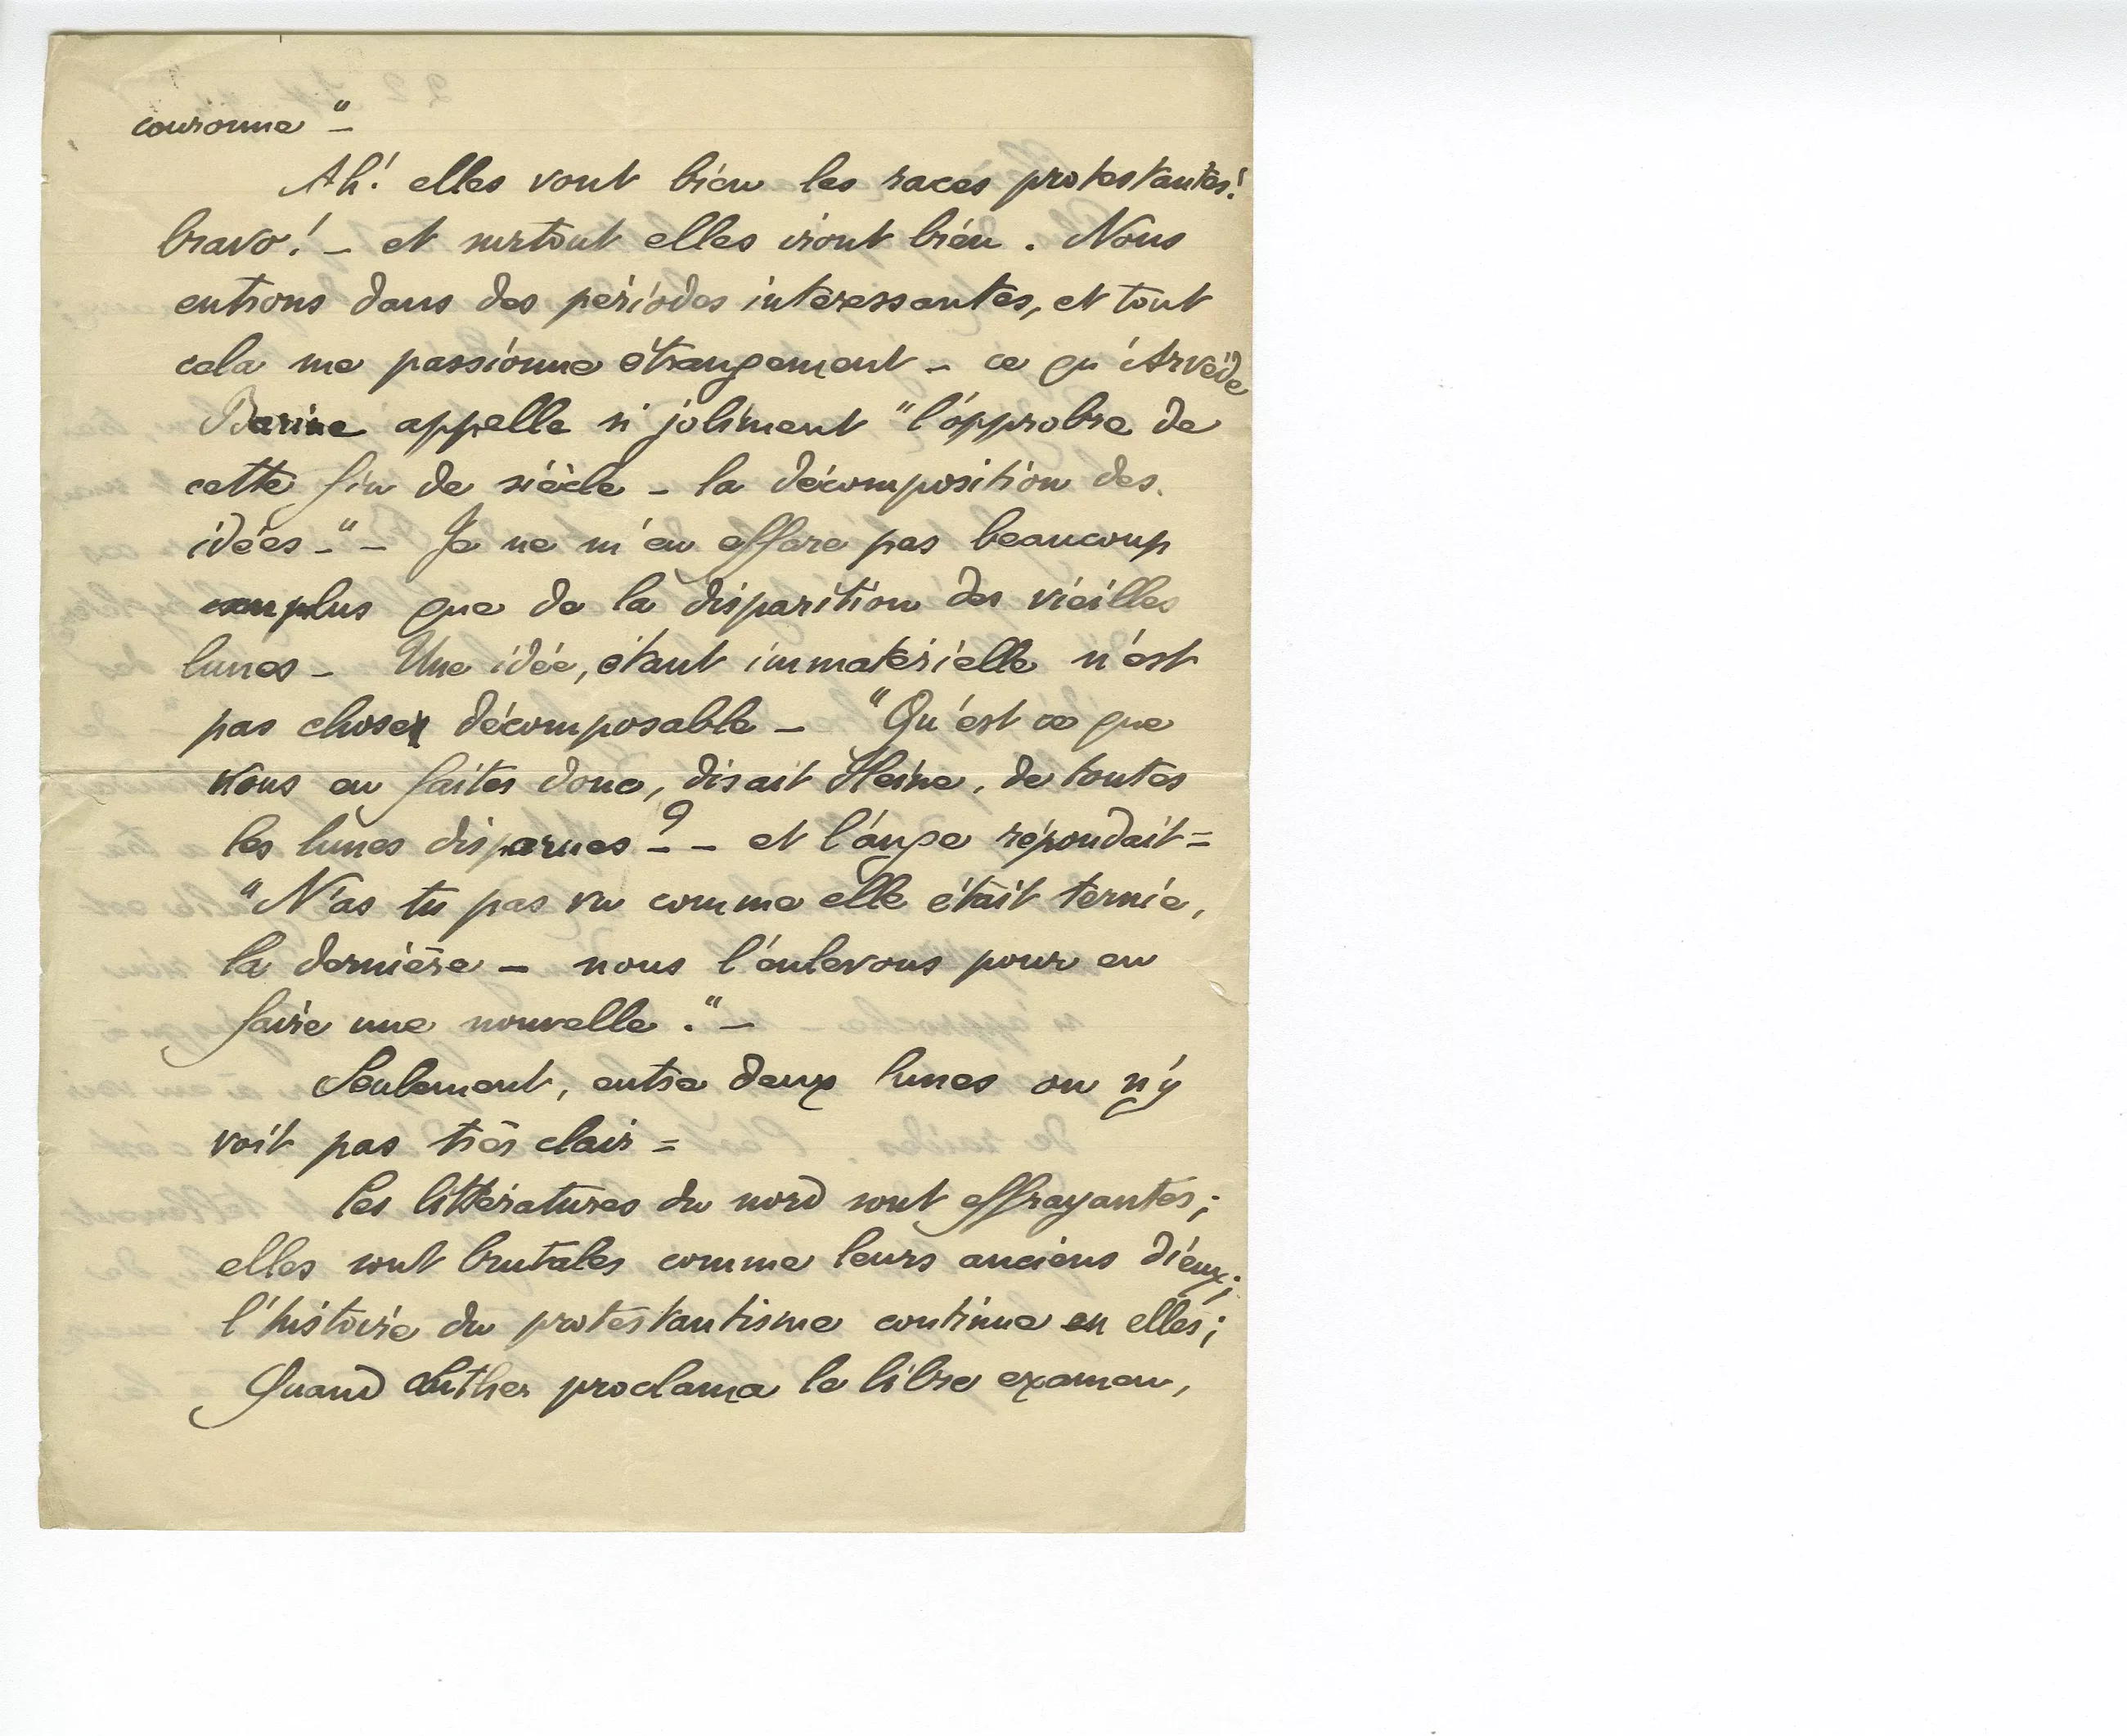 couronne" –
Ah! elles vont bien les races protestantes!
bravo! – et surtout elles iront bien. Nous
entrons dans des périodes intéressantes, et tout
cela me passionne étrangement – ce qu'Arvède
Barine appelle si joliment "l'opprobre de
cette fin de siècle – la décomposition des
idées – " – Je ne m'en effare pas beaucoup
plus que de la disparition des vieilles
lunes – Une idée, étant immatérielle n'est
pas chose décomposable – "Qu'est ce que
vous en faites donc, disait Heine, de toutes
les lunes disparues? – – et l'ange répondait =
"N'as tu pas vu comme elle était ternie,
la dernière – nous l'enlevons pour en
faire une nouvelle." –
Seulement, entre deux lunes on n'y
voit pas très clair =
Les littératures du nord sont effrayantes;
elles sont brutales comme leurs anciens dieux;
l'histoire du protestantisme continue en elles;
Quand Luther proclama le libre examen,